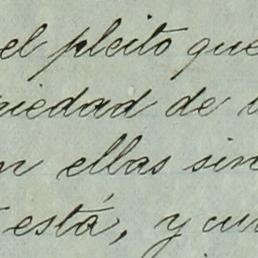 el pleito que
piedad de
ellas sin
está, y